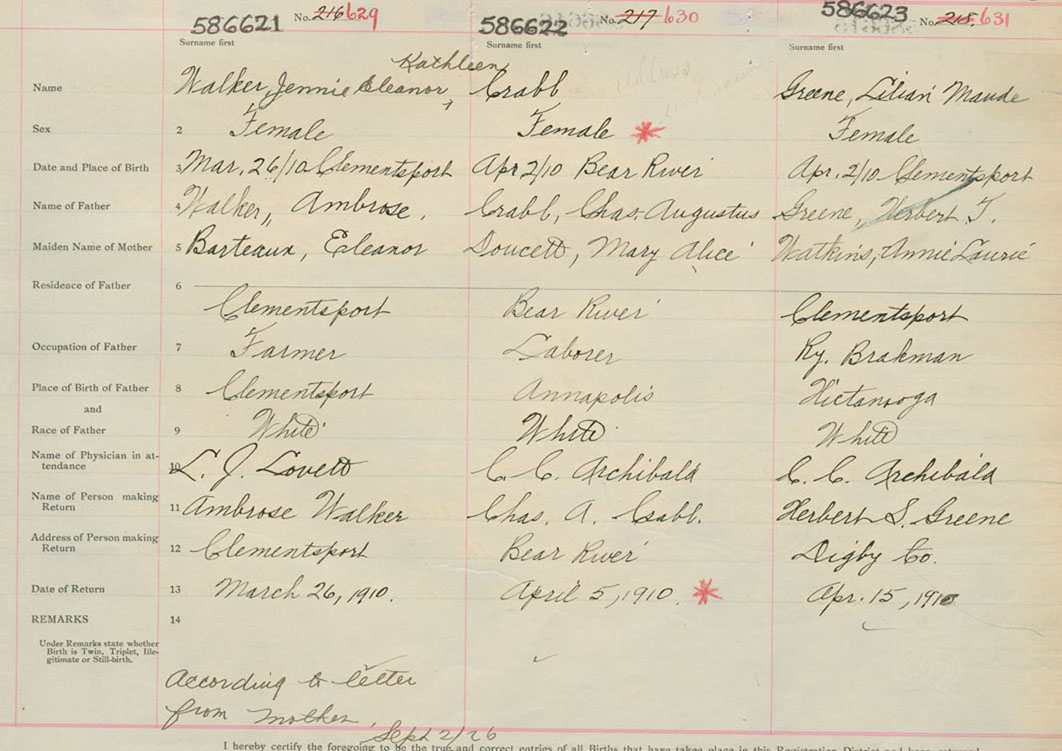 586621 No. 216 629 586622 No. 217 630 586623 No. 218, 631
Surname first Surname first Surname first
Kathleen address
Name Walker, Jennie Eleanor Crabb Greene, Lilian Maude
Sex 2 Female Female * Female
Date and Place of Birth 3 Mar. 26/10 Clementsport Apr 2/10 Bear River Apr. 2/10 Clementsport
Name of Father 4 Walker, Ambrose. Crabb, Chas. Augustus Greene, Herbert T.
Maiden Name of Mother 5 Barteaux, Eleanor Doucett, Mary Alice Watkins, Annie Laurie
Residence of Father 6
Clementsport Bear River Clementsport
Occupation of Father 7 Farmer Laborer Ry. Brakman
Place of Birth of Father 8 Clementsport Annapolis Hictanooga
and
Race of Father 9 White White White
Name of Physician in at-
tendance 10 L. J. Lovett C. C. Archibald C. C. Archibald
Name of Person making
Return 11 Ambrose Walker Chas. A. Crabb. Herbert S. Greene
Address of Person making
Return 12 Clementsport Bear River Digby Co.
Date of Return 13 March 26, 1910. April 5, 1910. * Apr. 15, 1910
REMARKS 14
Under Remarks state whether
Birth is Twin, Triplet, Ille-
gitimate or Still-birth.
According to letter
from mother,
Sept 2/26
I hereby certify the foregoing to be the true and correct entries of all Births that have taken place in this Registration District and have